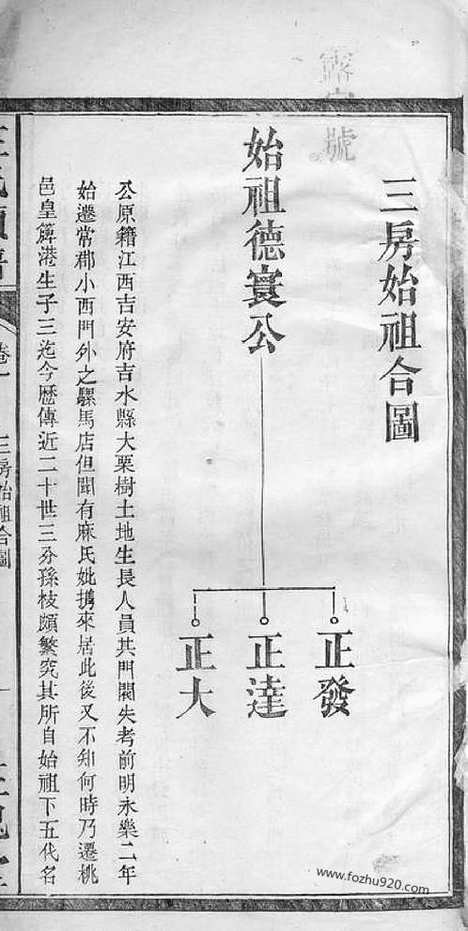 三房始祖合圖
始祖德寰公
正發
正達
正大
公原籍江西吉安府吉水縣大栗樹土地生長人員其門閥失考前明永樂二年
始遷常郡小西門外之騾馬店但聞有麻氏妣攜來居此後又不知何時乃遷桃
邑皇簰港生子三迄今歷傳近二十世三分孫枝頗繁究其所自始祖下五代名
卷一
三房始祖合圖
號
www.fozhu920.com